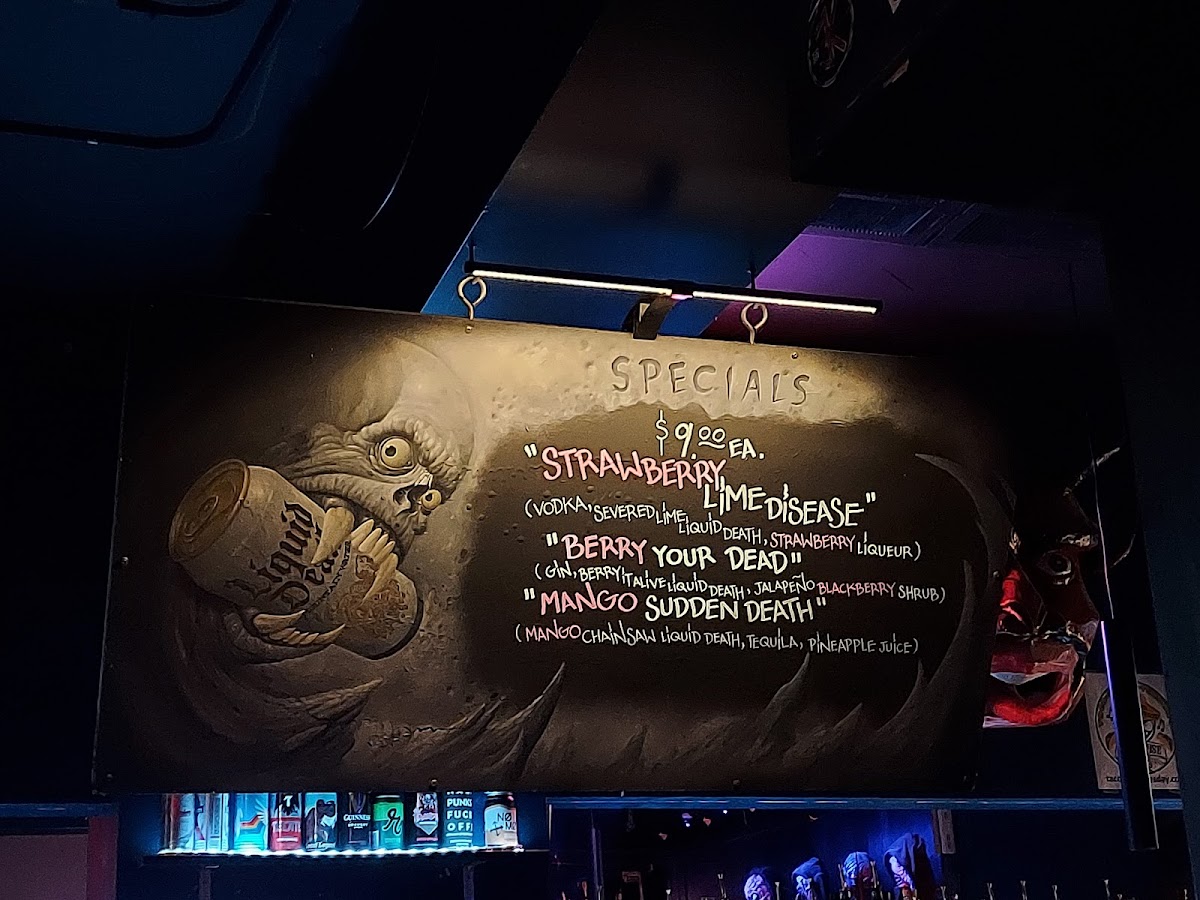 SPECIALS
$9.00 EA.
"STRAWBERRY
LIME DISEASE"
(VODKA, SEVERED LIME LIQUID DEATH, STRAWBERRY LIQUEUR)
"BERRY YOUR DEAD"
(GIN, BERRY IT ALIVE LIQUID DEATH, JALAPEÑO BLACKBERRY SHRUB)
"MANGO SUDDEN DEATH"
(MANGO CHAINSAW LIQUID DEATH, TEQUILA, PINEAPPLE JUICE)
Liquid
Death
GUINNESS
PUNKS
FUCK
OFF
NO